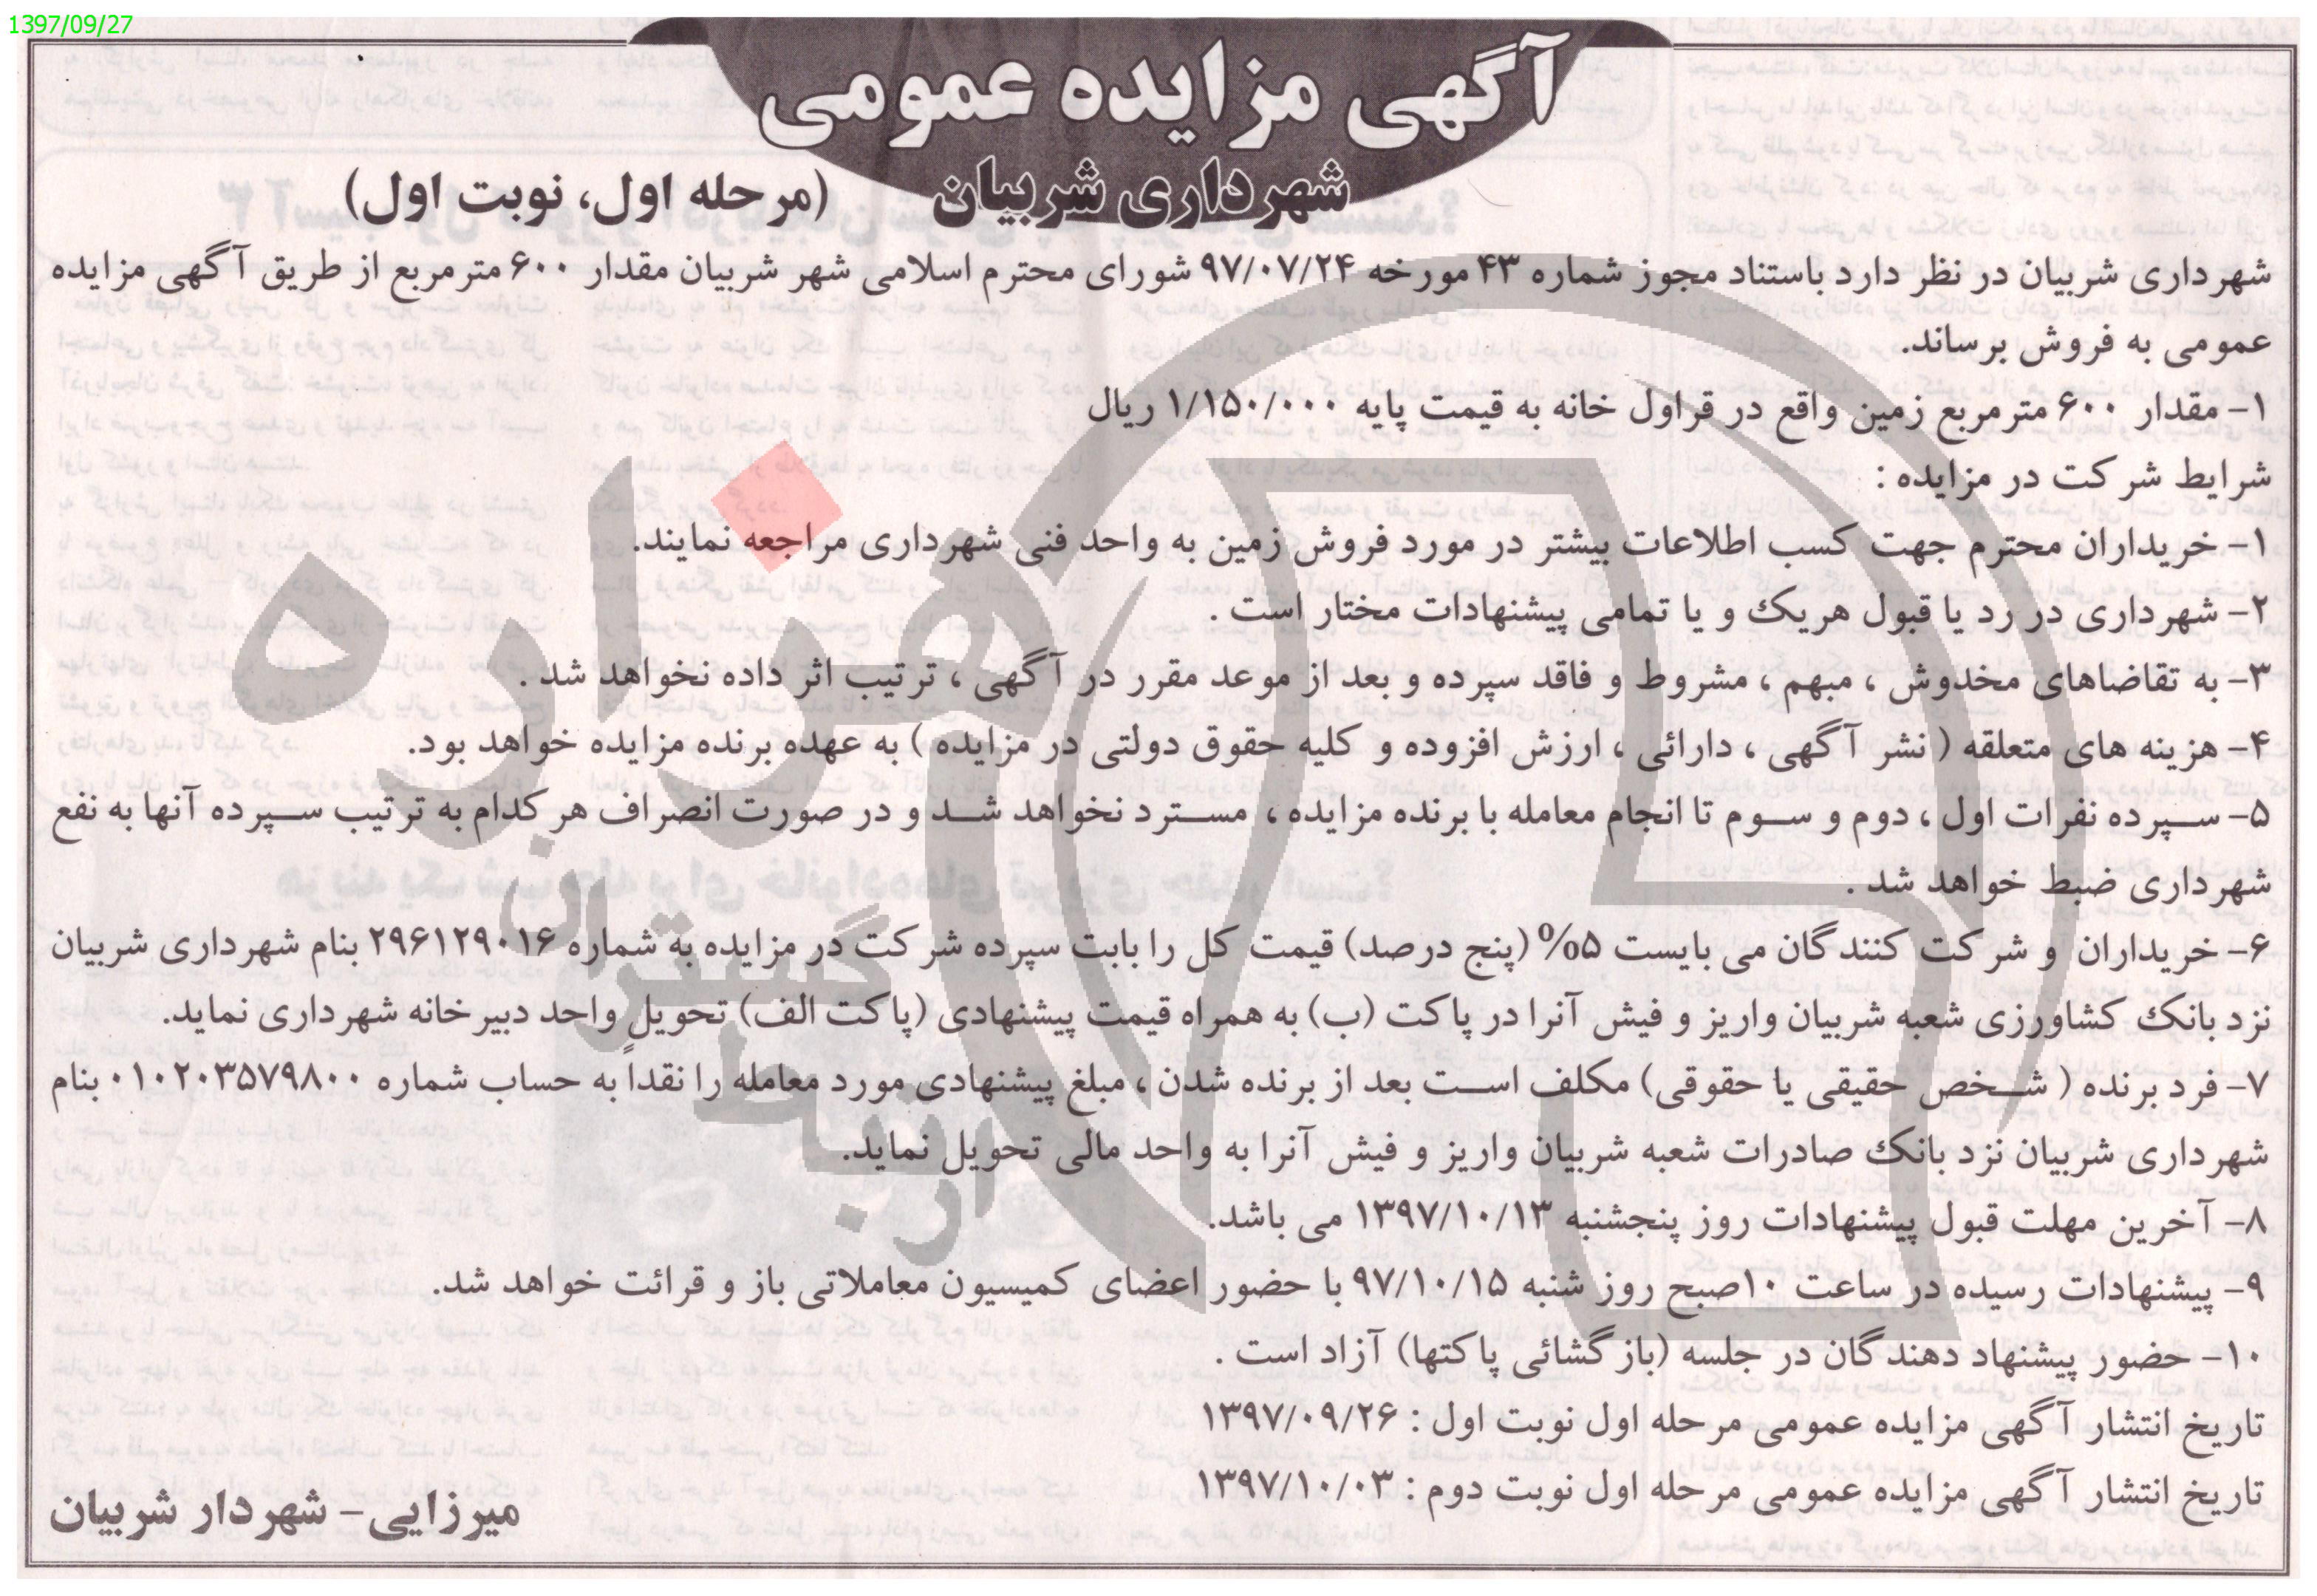 1397/09/27
آگهی مزایده عمومی
شهرداری شربیان (مرحله اول، نوبت اول)
شهرداری شربیان در نظر دارد باستناد مجوز شماره ۴۳ مورخه ۹۷/۰۷/۲۴ شورای محترم اسلامی شهر شربیان مقدار ۶۰۰ مترمربع از طریق آگهی مزایده
عمومی به فروش برساند.
۱- مقدار ۶۰۰ مترمربع زمین واقع در قراول خانه به قیمت پایه ۱/۱۵۰/۰۰۰ ریال
شرایط شرکت در مزایده :
۱- خریداران محترم جهت کسب اطلاعات بیشتر در مورد فروش زمین به واحد فنی شهرداری مراجعه نمایند.
۲- شهرداری در رد یا قبول هریک و یا تمامی پیشنهادات مختار است .
۳- به تقاضاهای مخدوش ، مبهم ، مشروط و فاقد سپرده و بعد از موعد مقرر در آگهی ، ترتیب اثر داده نخواهد شد .
۴- هزینه های متعلقه ( نشر آگهی ، دارائی ، ارزش افزوده و کلیه حقوق دولتی در مزایده ) به عهده برنده مزایده خواهد بود.
۵- سپرده نفرات اول ، دوم و سوم تا انجام معامله با برنده مزایده ، مسترد نخواهد شد و در صورت انصراف هر کدام به ترتیب سپرده آنها به نفع
شهرداری ضبط خواهد شد .
۶- خریداران و شرکت کنندگان می بایست ۵% (پنج درصد) قیمت کل را بابت سپرده شرکت در مزایده به شماره ۲۹۶۱۲۹۰۱۶ بنام شهرداری شربیان
نزد بانک کشاورزی شعبه شربیان واریز و فیش آنرا در پاکت (ب) به همراه قیمت پیشنهادی (پاکت الف) تحویل واحد دبیرخانه شهرداری نماید.
۷- فرد برنده ( شخص حقیقی یا حقوقی) مکلف است بعد از برنده شدن ، مبلغ پیشنهادی مورد معامله را نقداً به حساب شماره ۰۱۰۲۰۳۵۷۹۸۰۰۰ بنام
شهرداری شربیان نزد بانک صادرات شعبه شربیان واریز و فیش آنرا به واحد مالی تحویل نماید.
۸- آخرین مهلت قبول پیشنهادات روز پنجشنبه ۱۳۹۷/۱۰/۱۳ می باشد.
۹- پیشنهادات رسیده در ساعت ۱۰صبح روز شنبه ۹۷/۱۰/۱۵ با حضور اعضای کمیسیون معاملاتی باز و قرائت خواهد شد.
۱۰- حضور پیشنهاد دهندگان در جلسه (بازگشائی پاکتها) آزاد است .
تاریخ انتشار آگهی مزایده عمومی مرحله اول نوبت اول : ۱۳۹۷/۰۹/۲۶
تاریخ انتشار آگهی مزایده عمومی مرحله اول نوبت دوم : ۱۳۹۷/۱۰/۰۳
میرزایی- شهردار شربیان
هزاره
گستران
ارتباط